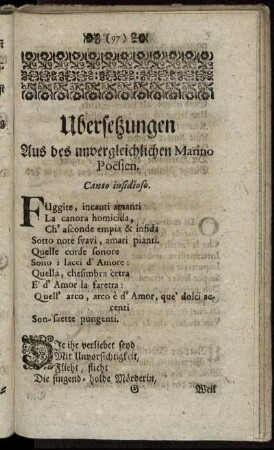 (97)
Ubersetzungen
Aus des unvergleichlichen Marino
Poësien.
Canto insidioso.
FUggite, incauti amanti
La canora homicida,
Ch' asconde empia & infida
Sotto note svavi, amari pianti.
Quelle corde sonore
Sono i lacci d' Amore:
Quella, chesimbra cetra
E' d' Amor la faretra:
Quell' arco, arco è d' Amor, que' dolci ac-
centi
Son-saette pungenti.
DIe ihr verliebet seyd
Mit Unvorsichtigkeit,
Flieht, flieht
Die singend-holde Mörderin,
G Weil